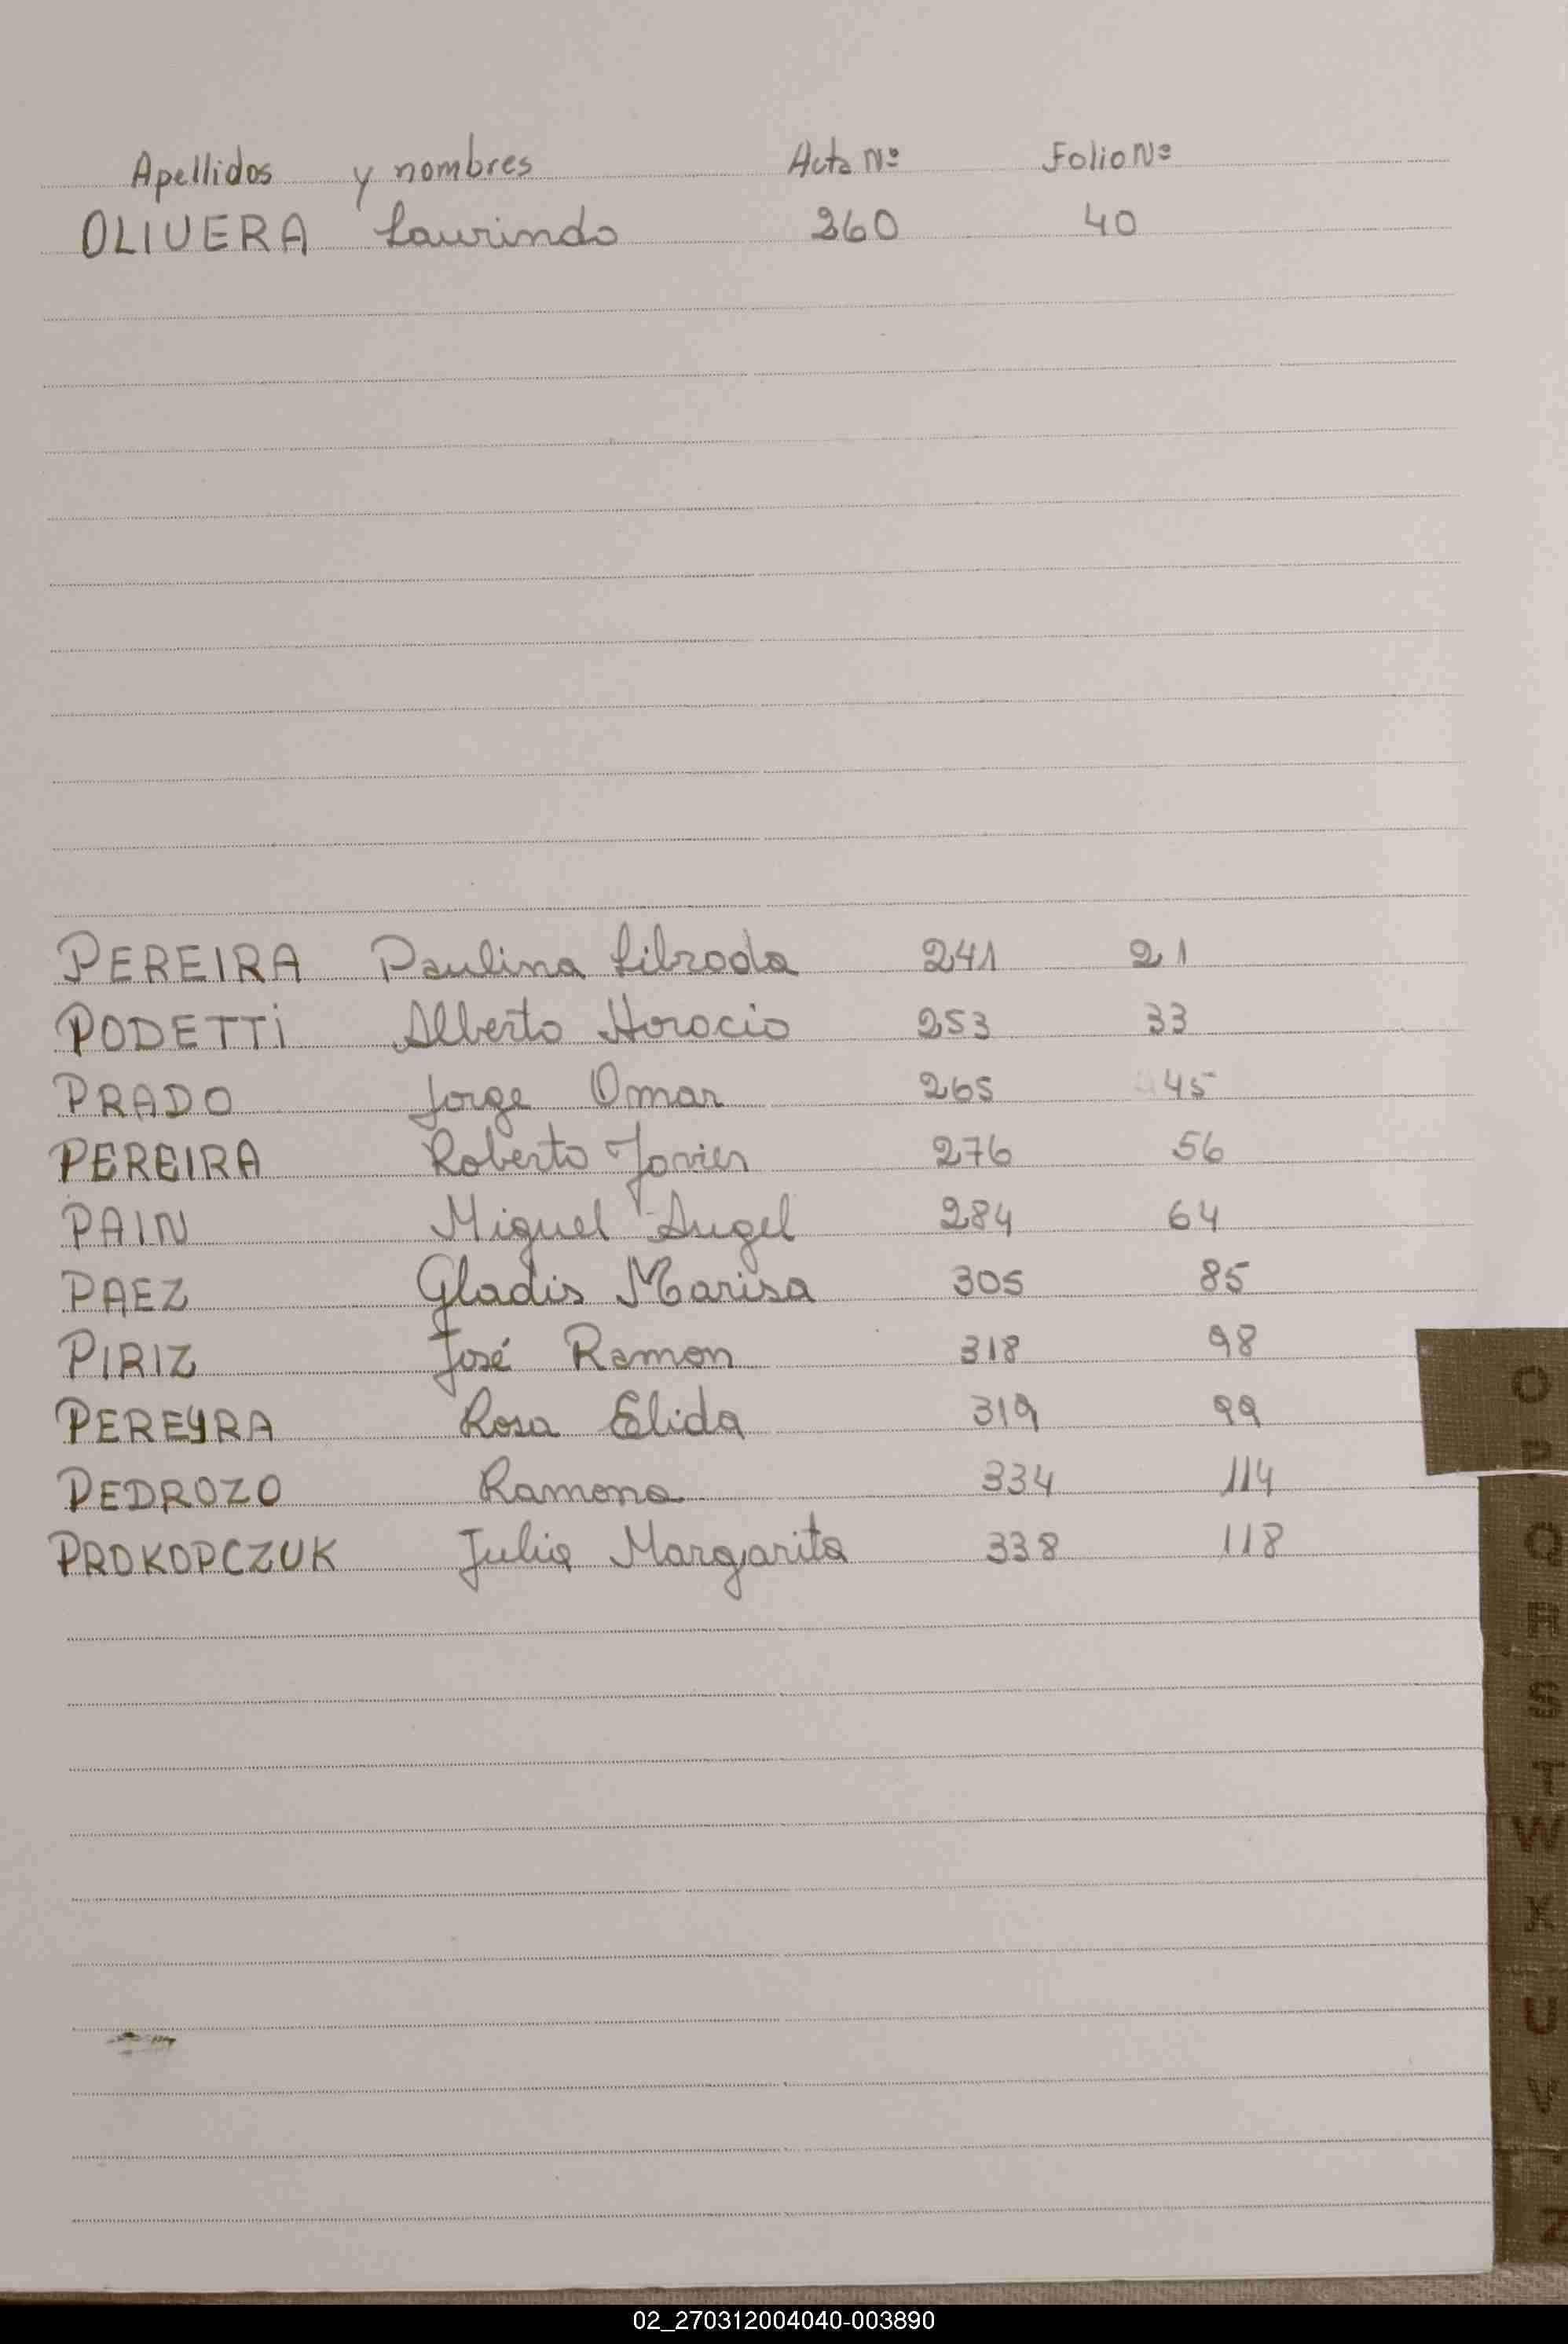 Apellidos y nombres Acta Nº Folio Nº
OLIVERA Laurindo 260 40
PEREIRA Paulina Librada 241 21
PODETTi Alberto Horacio 253 33
PRADO Jorge Omar 265 45
PEREIRA Roberto Javier 276 56
PAIN Miguel Angel 284 64
PAEZ Gladis Marisa 305 85
PIRIZ José Ramon 318 98
PEREYRA Rosa Elida 319 99
PEDROZO Ramona 334 114
PROKOPCZUK Julia Margarita 338 118
O
P
Q
R
S
T
W
X
U
Z
02_270312004040-003890